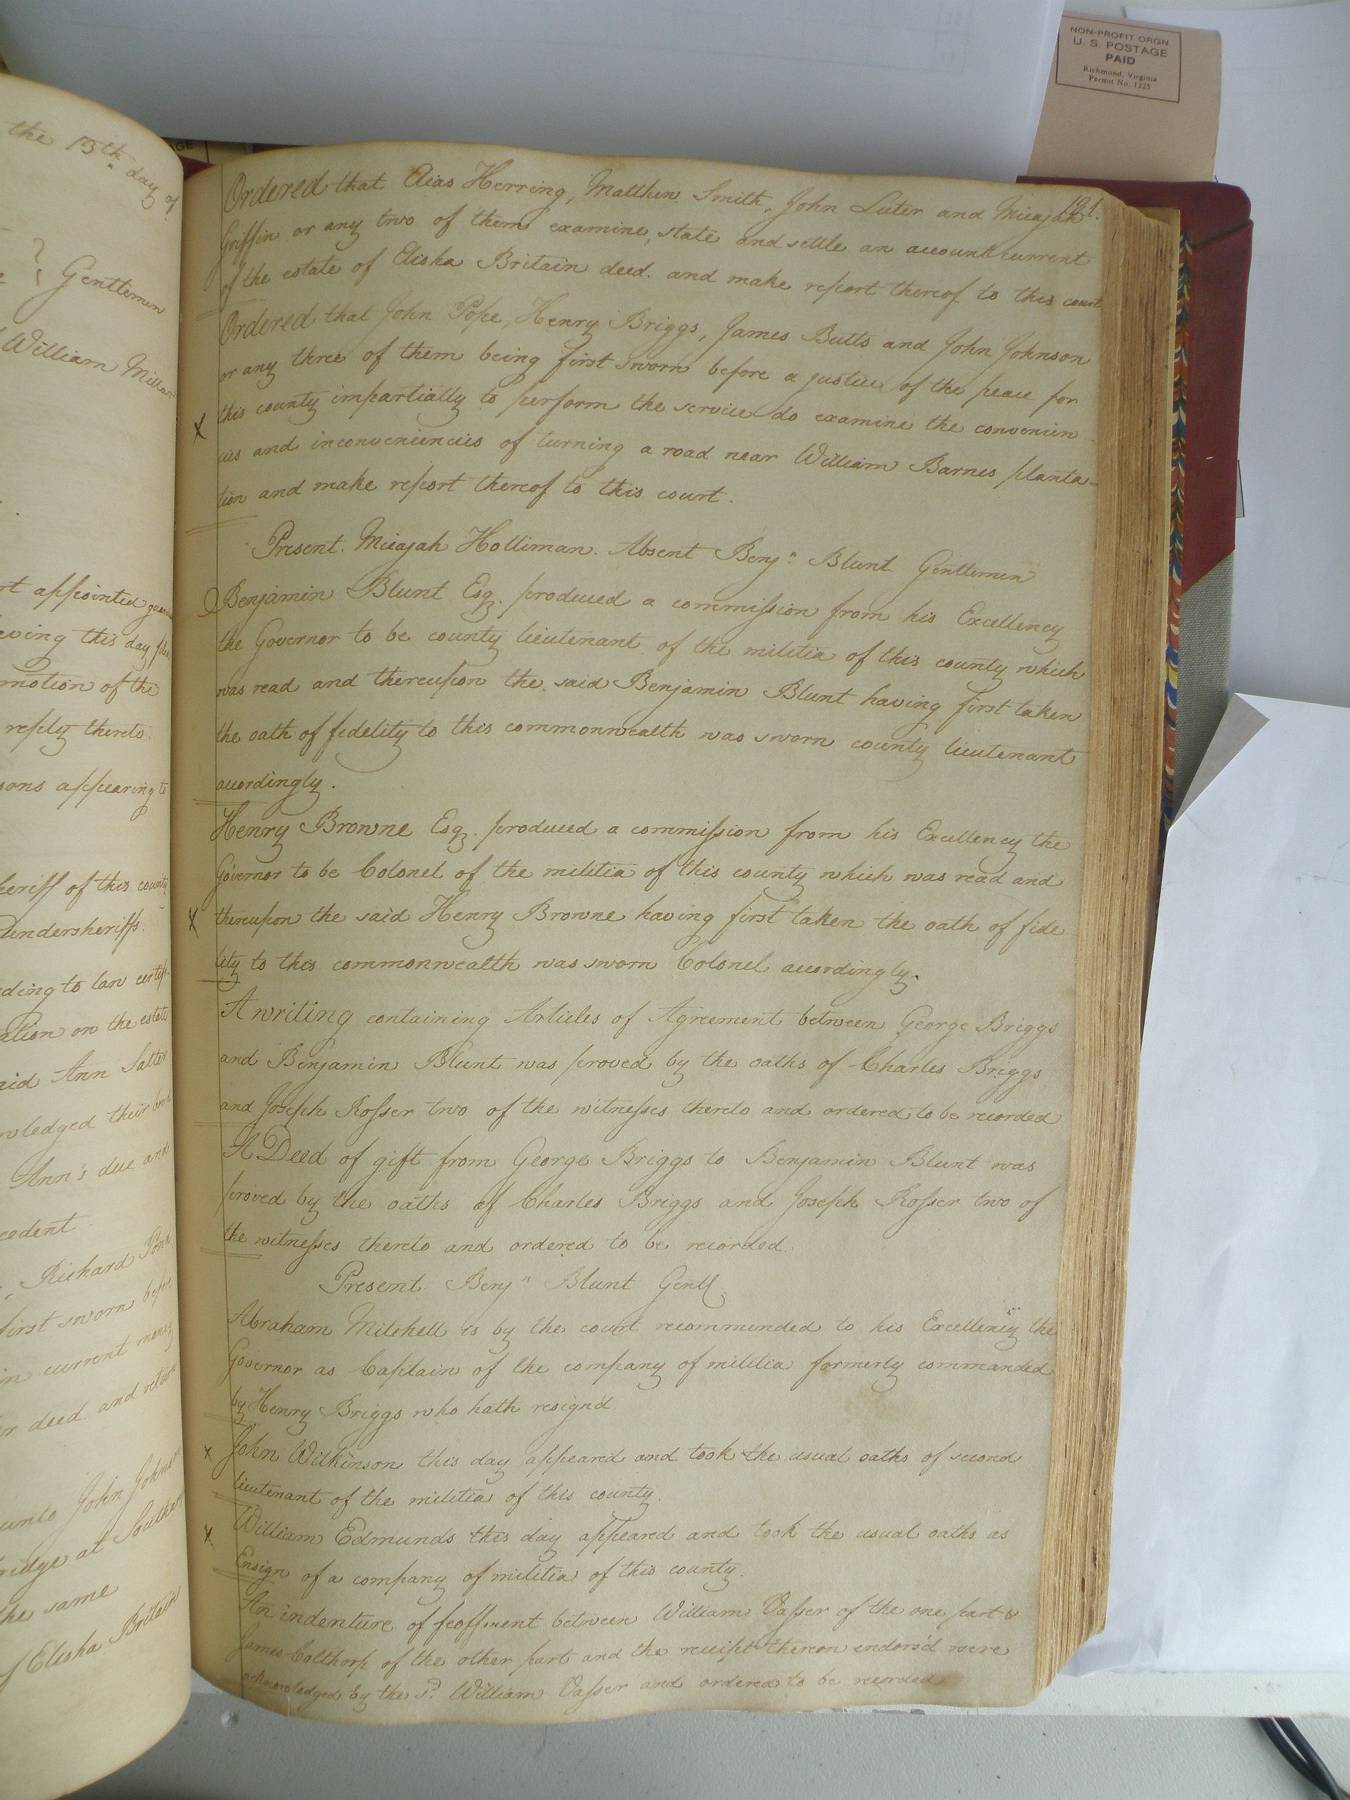 NON-PROFIT ORGN
U. S. POSTAGE
PAID
Richmond, Virginia
Permit No. 1225
the 13th day of
Gentlemen
William Millar
rt appointed
eving this day
motion of the
reply thereto.
sons appearing to
heriff of this county
undersheriffs.
ding to law certif-
ation on the estate
aid Ann Salter
wledged their
Ann's due and
cedent
Richard
first sworn before
in current money
er deed. and return
unto John Johnson
ridge at
he same
of Elisha Britain
Ordered that Elias Herring, Matthew Smith, John Luter and Micajah
Griffin or any two of them examine, state and settle an account current
of the estate of Elisha Britain deed. and make report thereof to this court
Ordered that John Pope, Henry Briggs, James Butts and John Johnson
or any three of them being first sworn before a justice of the peace for
x this county impartially to perform the service do examine the convenien-
cies and inconveniencies of turning a road near William Barnes planta-
tion and make report thereof to this court.
Present. Micajah Holliman. Absent Benjn Blunt Gentlemen
Benjamin Blunt Esq. produced a commission from his Excellency
the Governor to be county lieutenant of the militia of this county which
was read and thereupon the said Benjamin Blunt having first taken
the oath of fidelity to this commonwealth was sworn county lieutenant
accordingly.
Henry Browne Esq. produced a commission from his Excellency the
Governor to be Colonel of the militia of this county which was read and
x thereupon the said Henry Browne having first taken the oath of fide
lity to this commonwealth was sworn Colonel accordingly.
A writing containing Articles of Agreement between George Briggs
and Benjamin Blunt was proved by the oaths of Charles Briggs
and Joseph Rosser two of the witnesses thereto and ordered to be recorded
A Deed of gift from George Briggs to Benjamin Blunt was
proved by the oaths of Charles Briggs and Joseph Rosser two of
the witnesses thereto and ordered to be recorded.
Present Benjn Blunt Gentl.
Abraham Mitchell is by the court recommended to his Excellency the
Governor as Captain of the company of militia formerly commanded
by Henry Briggs who hath resign'd.
x John Wilkinson this day appeared and took the usual oaths of second
lieutenant of the militia of this county.
x William Edmunds this day appeared and took the usual oaths as
Ensign of a company of militia of this county.
An indenture of feoffment between William Vasser of the one part &
James Colthorp of the other part and the receipt thereon endors'd were
acknowledged by the sd. William Vasser and ordered to be recorded